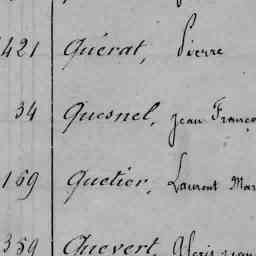 421 Quérat, Pierre
34 Quesnel, Jean Franço
169 Quetier, Laurent Mar
359 Quevert, Alexis Jean